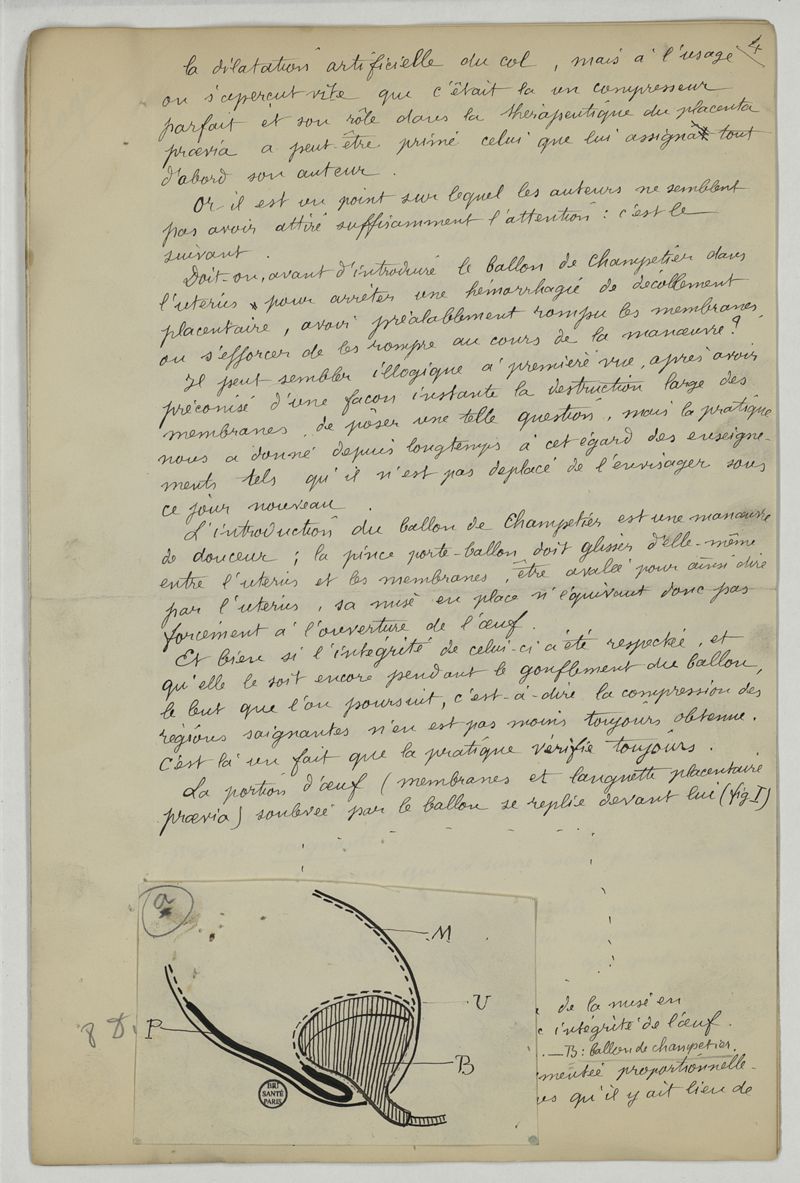 4
la dilatation artificielle du col, mais à l'usage
on s'aperçut vite que c'était là un compresseur
parfait et son rôle dans la thérapeutique du placenta
prœvia a peut-être primé celui que lui assigna tout
d'abord son auteur.
Or il est un point sur lequel les auteurs ne semblent
pas avoir attiré suffisamment l'attention : c'est le
suivant.
Doit-on, avant d'introduire le ballon de Champetier dans
l'uterus pour arrêter une hémorrhagie de décollement
placentaire, avoir préalablement rompu les membranes,
ou s'efforcer de les rompre au cours de la manœuvre ?
Il peut sembler illogique à première vue, après avoir
préconisé d'une façon instante la destruction large des
membranes, de poser une telle question, mais la pratique
nous a donné depuis longtemps à cet égard des enseigne-
ments tels qu'il n'est pas déplacé de l'envisager sous
ce jour nouveau.
L'introduction du ballon de Champetier est une manœuvre
de douceur ; la pince porte-ballon doit glisser d'elle-même
entre l'uterus et les membranes, être avalée pour ainsi dire
par l'uterus, sa mise en place n'équivaut donc pas
forcément à l'ouverture de l'œuf.
Et bien si l'intégrité de celui-ci a été respectée, et
qu'elle le soit encore pendant le gonflement du ballon,
le but que l'on poursuit, c'est-à-dire la compression des
régions saignantes n'en est pas moins toujours obtenue.
C'est là un fait que la pratique vérifie toujours.
La portion d'œuf (membranes et languette placentaire
prœvia) soulevée par le ballon se replie devant lui (fig I)
a
M
U
P
B
BIU
SANTÉ
PARIS
de la mise en
intégrité de l'œuf.
. — B : ballon de champetier.
mentée proportionnelle-
qu'il y ait lieu de